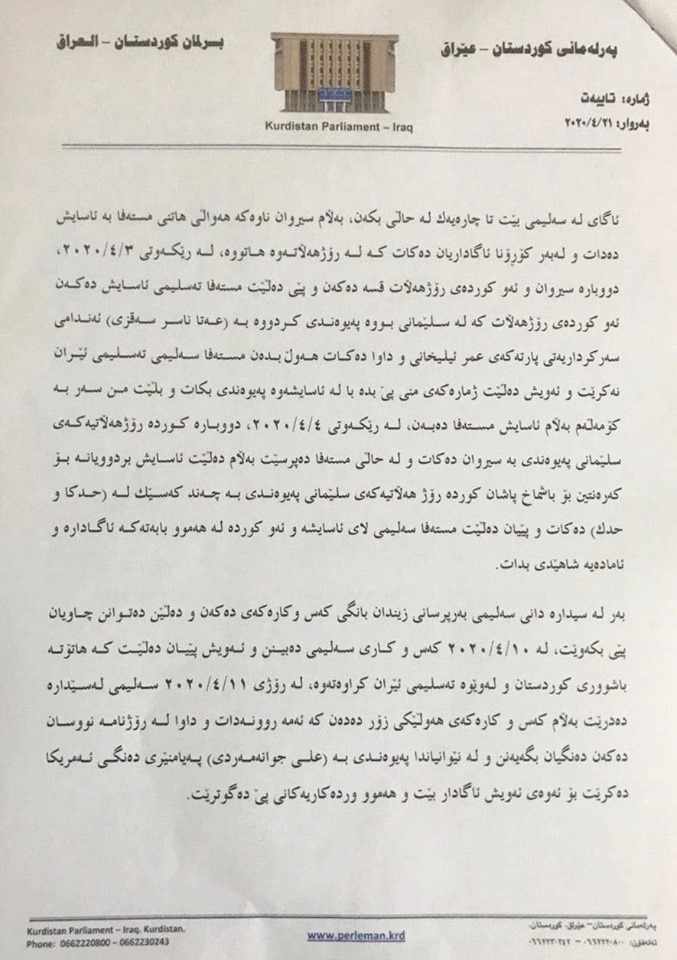 پەرلەمانی کوردستان – عێراق
برلمان کوردستان – العراق
Kurdistan Parliament – Iraq
ژمارە: تایبەت
بەروار: ٢٠٢٠/٤/٢١
ئاگای لە سەلیمی بێت تا چارەیەك لە حاڵی بکەن، بەڵام سیروان ناوەکە هەواڵی هاتنی مستەفا بە ئاسایش
دەدات و لەبەر کۆرۆنا ئاگاداریان دەکات کە لە رۆژهەڵاتەوە هاتووە، لە رێکەوتی ٢٠٢٠/٤/٣،
دووبارە سیروان و ئەو کوردەی رۆژهەڵات قسە دەکەن و پێی دەڵێت مستەفا تەسلیمی ئاسایش دەکەن
ئەو کوردەی رۆژهەڵات کە لە سلێمانی بووە پەیوەندی کردووە بە (عەتا ناسر سەقزی) ئەندامی
سەرکردایەتی پارتەکەی عمر ئیلیخانی و داوا دەکات هەوڵ بدەن مستەفا سەلیمی تەسلیمی ئێران
نەکرێت و ئەویش دەڵێت ژمارەکەی منی پێ بدە با لە ئاسایشەوە پەیوەندی بکات و بلێت من سەر بە
کۆمەڵەم بەڵام ئاسایش مستەفا دەبەن، لە رێکەوتی ٢٠٢٠/٤/٤، دووبارە کوردە رۆژهەڵاتیەکەی
سلێمانی پەیوەندی بە سیروان دەکات و لە حاڵی مستەفا دەپرسێت بەڵام دەڵێت ئاسایش بردوویانە بۆ
کەرەنتین بۆ باشماخ پاشان کوردە رۆژ هەڵاتیەکەی سلێمانی پەیوەندی بە چەند کەسێك لە (حدکا و
حدك) دەکات و پێیان دەڵێت مستەفا سەلیمی لای ئاسایشە و ئەو کوردە لە هەموو بابەتەکە ئاگادارە و
ئامادەیە شاهێدی بدات.
بەر لە سیدارە دانی سەلیمی بەرپرسانی زیندان بانگی کەس وکارەکەی دەکەن و دەڵێن دەتوانن چاویان
پێی بکەوێت، لە ٢٠٢٠/٤/١٠ کەس و کاری سەلیمی دەبینن و ئەویش پێیان دەڵێت کە هاتۆتە
باشووری کوردستان و لەوێوە تەسلیمی ئێران کراوەتەوە، لە رۆژی ٢٠٢٠/٤/١١ سەلیمی لەسێدارە
دەدرێت بەڵام کەس و کارەکەی هەوڵێکی زۆر دەدەن کە ئەمە روونەدات و داوا لە رۆژنامە نووسان
دەکەن دەنگیان بگەیەنن و لە نێوانیاندا پەیوەندی بە (علی جوانمەردی) پەیامنێری دەنگی ئەمریکا
دەکرێت بۆ ئەوەی ئەویش ئاگادار بێت و هەموو وردەکاریەکانی پێ دەگوترێت.
پەرلەمانی کوردستان– عێراق. کوردستان.
Kurdistan Parliament – Iraq. Kurdistan.
Phone: 0662220800 – 0662230243
www.perleman.krd